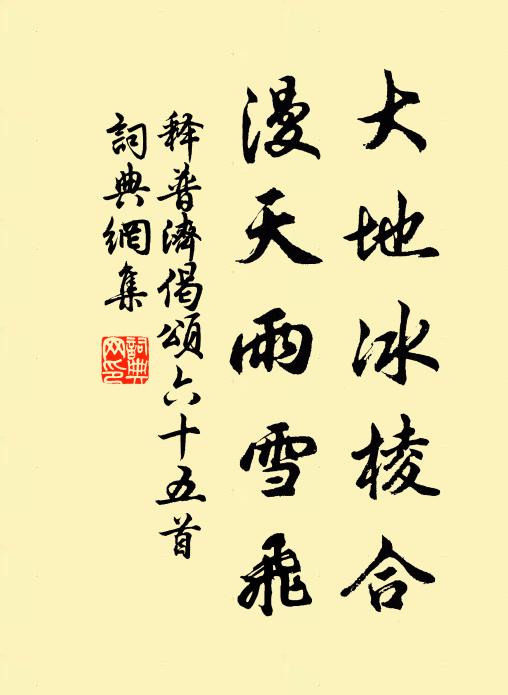 大地冰棱合
漫天雨雪飛
釋普濟偈頌六十五首
詞典網集
詞典
网印